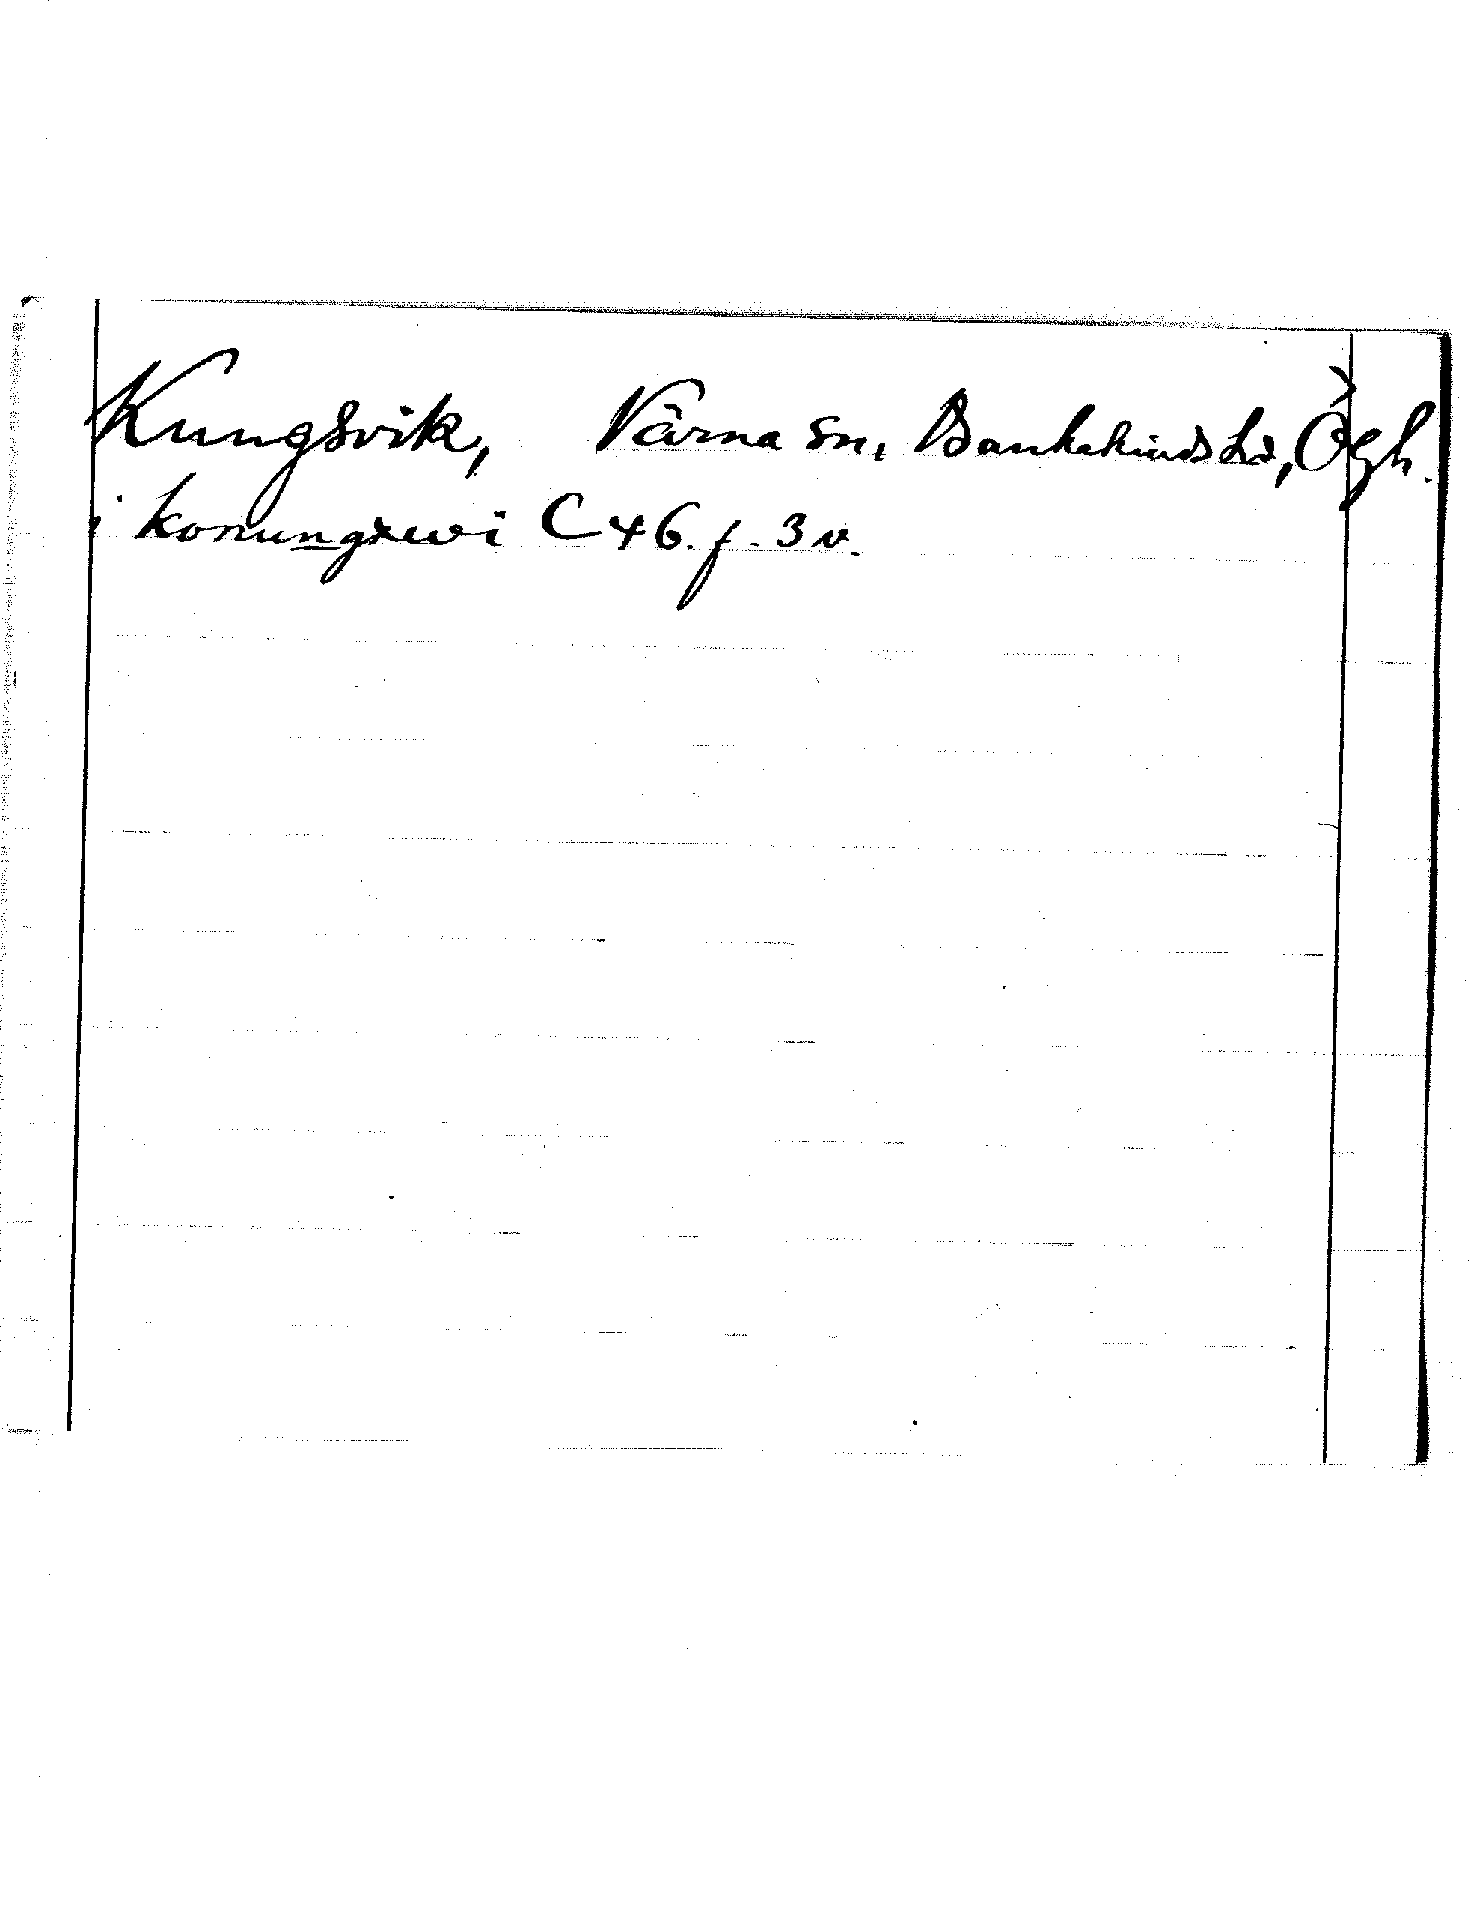 Kungsvik, Värna sn, Bankekinds hd, Ögl.
i konungxwi C 46. f. 3 v.